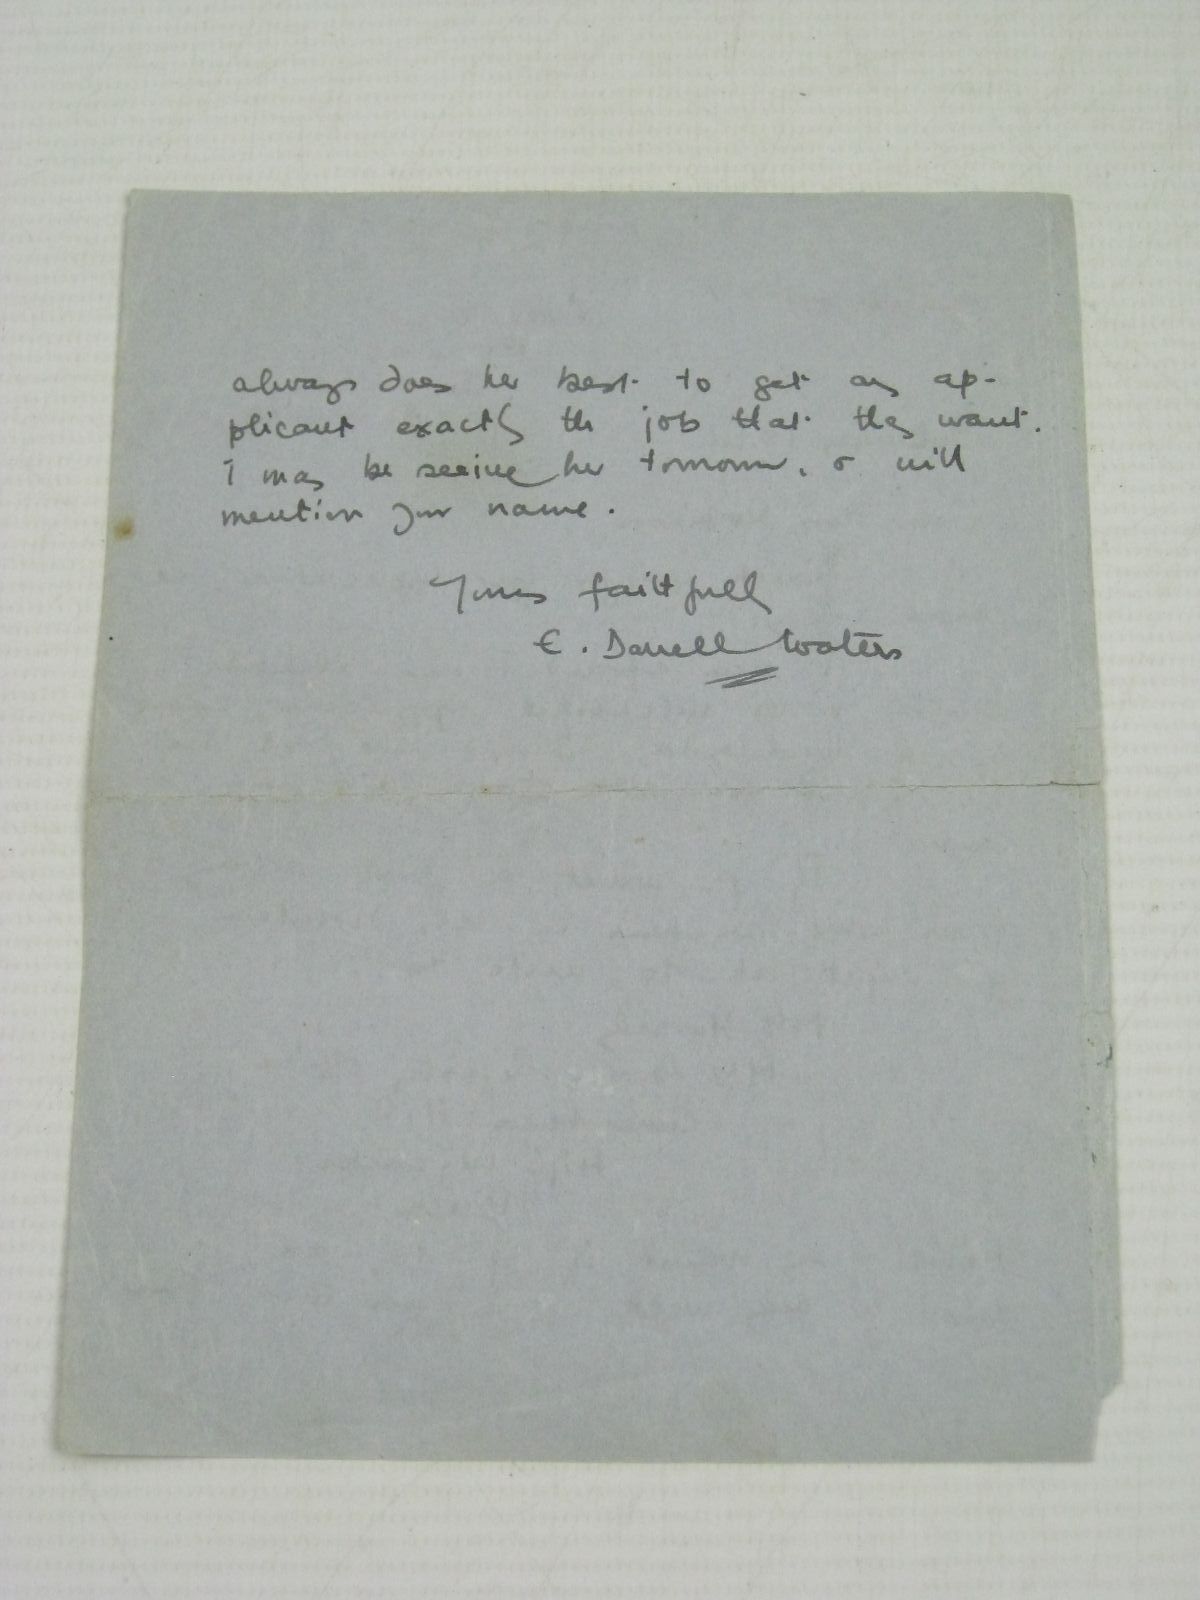 always does her best to get any ap-
plicant exactly the job that they want.
I may be seeing her tomorrow, & will
mention your name.
Yours faithfully
E. Darrell Waters